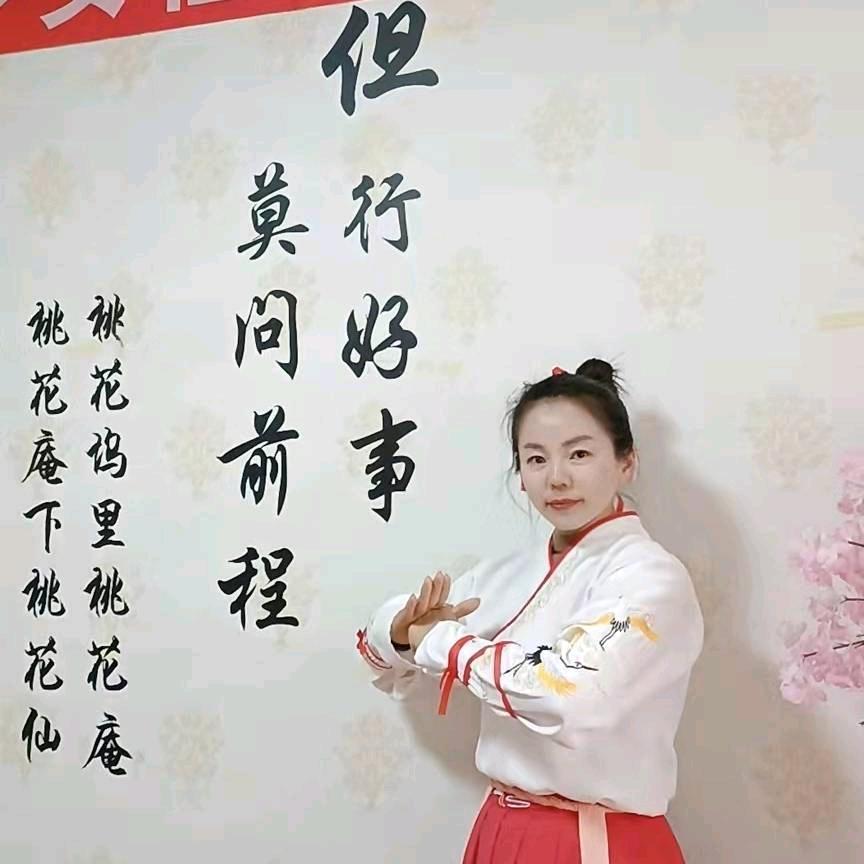 但行好事
莫问前程
桃花坞里桃花庵
桃花庵下桃花仙